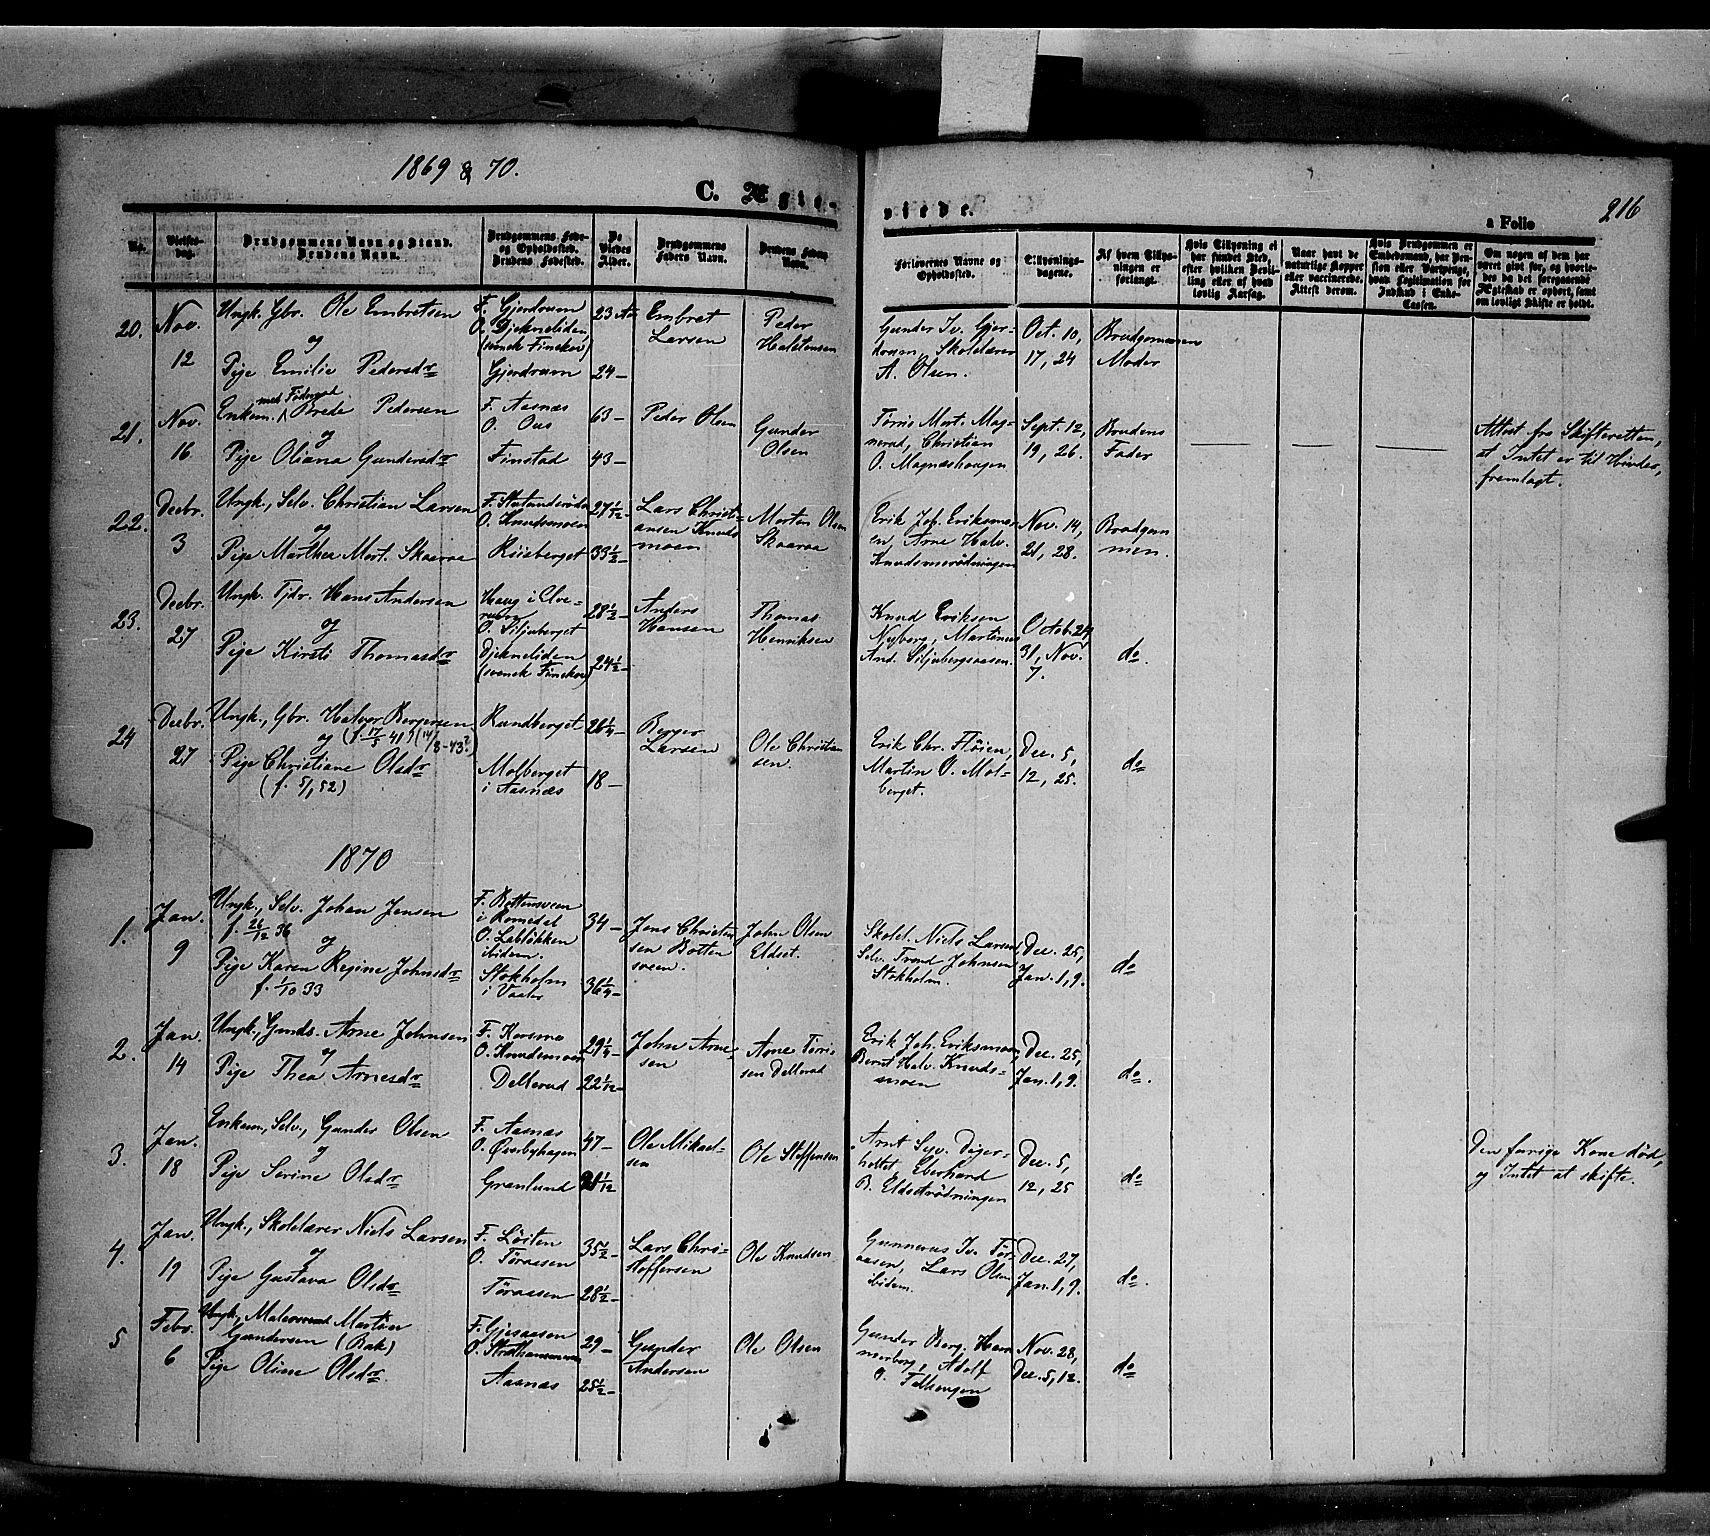 1869 & 70.
C. Ægte-
viede.
a Folio
216
No.
Vielses-
dag.
Brudgommens Navn og Stand.
Brudens Navn.
Brudgommens Føde-
og Opholdssted.
Brudens Fødested.
De
Viedes
Alder.
Brudgommens
Faders Navn.
Brudens Faders
Navn.
Forlovernes Navne og
Opholdssted.
Tillysnings-
dagene.
Af hvem Tillys-
ningen er
forlangt.
Hvis Tillysning ei
har fundet Sted,
efter hvilken Bevil-
ling eller af hvad
lovlig Aarsag.
Naar havt de
naturlige Kopper
eller vaccinerede.
Attest derom.
Hvis Brudgommen er
Embedsmand, har Pen-
sion eller Vartpenge,
hvad Legitimation for
Indskud i Enke-
Cassen.
Om nogen af dem har
været gift før, og hvorle-
des da det foregaaende
Ægteskab er ophørt, samt
om lovligt Skifte er holdt.
20.
Nov.
12
Ungk. Gbr. Ole Embretsen
og
Pige Emilie Pedersdr
F. Gjerdrum
O. Djekneliden
(svensk Finskov)
Gjerdrum
23 Aa
24 –
Embret
Larsen
Peder
Halstensen
Gunder Iv. Gjer-
drum, Skolelærer
A. Olsen.
Oct. 10,
17, 24
Brudgommens
Moder
21.
Nov.
16
Enkem. med Føderaad Brede Pedersen
og
Pige Oliana Gundersdr
F. Aasnæs
O. Ous
Finstad
63 –
43 –
Peder Olsen
Gunder
Olsen
Tørris Mort. Mag-
nerud, Christian
O. Magnæshaugen
Sept. 12,
19, 26.
Brudens
Fader
Attest fra Skifteretten,
at Intet er til Hinder,
fremlagt.
22.
Decbr.
3
Ungk., Selv. Christian Larsen
og
Pige Marthea Mort. Skaaraa
O. Knudsmoen
Risberget
27 1/12 –
33 1/2 –
Lars Christi-
ansen Knuds
moen
Morten Olsen
Skaaraa
Erik Joh. Eriksmo-
en, Arne Halv.
Knudsmorødningen
Nov. 14,
21, 28.
Brudgom
men.
23.
Decbr.
27
Ungk. Tjdr. Hans Andersen
og
Pige Kirsti Thomasdr
Haug i Elve-
rum
O. Siljuberget
Djekneliden
(svensk Finskov)
28 1/2 –
24 1/2 –
Anders
Hansen
Thomas
Henriksen
Knud Eriksen
Nyberg, Martinus
And. Siljubergsaasen.
Octob. 24,
31, Nov.
7.
do.
24
Decbr.
27
Ungk., Gbr. Halvor Bergersen
og (f. 17/5 41) (14/8-43?)
Pige Christiane Olsdr
(f. 5/1 52)
Rundberget
Molberget
i Aasnæs
26 1/4 –
18 –
Berger
Larsen
Ole Christian
sen.
Erik Chr. Fløien,
Martin O. Mol-
berget.
Dec. 5,
12, 25.
do
1870
1.
Jan.
9
Ungk., Selv. Johan Jensen
f. 26/12 36
og
Pige Karen Regine Johnsdr
f. 1/10 33
F. Bottensveen
i Romedal
O. Labløkken
ibidem.
Stokholm
i Vaaler
34 –
36 1/4 –
Jens Christen
sen Botten
sveen.
John Olsen
Eldset.
Skolel. Niels Larsen,
Selv. Trond Johnsen
Stokholm.
Dec. 25,
Jan. 1, 9.
do
2.
Jan.
14
Ungk., Gmds. Arne Johnsen
og
Pige Thea Arnesdr
F. Korsmo
O. Knudsmoen
Delterud
29 1/4 –
22 1/12 –
John Arne-
sen
Arne Tørri-
sen Delterud
Erik Joh. Eriksmoen,
Bernt Halv. Knuds-
moen
Dec. 25,
Jan. 1, 9.
do.
3.
Jan.
18
Enkem., Selv., Gunder Olsen
og
Pige Serine Olsdr
F. Aasnæs
O. Øvrbyhagen
Granlund
47 –
Ole Mikael-
sen
Ole Steffensen
Arnt Syv. Diger-
holtet, Eberhard
B. Eldsetrødningen
Dec. 5,
12, 25
do
Den forrige Kone død,
og Intet at skifte.
4.
Jan.
19
Ungk., Skolelærer Niels Larsen
og
Pige Gustava Olsdr
F. Løiten
O. Töraasen
Töraasen
35 1/2 –
28 1/2 –
Lars Chri-
stoffersen
Ole Knudsen
Gunnerus Iv. Tør-
aasen, Lars Olsen
ibidem.
Dec. 27,
Jan. 1, 9.
do.
5
Febr.
6
Ungk., Martin
Gundersen (Bak)
Pige Oline Olsdr
F. Gjesaasen
Aasnæs
29 –
25 1/2 –
Gunder
Andersen
Ole Olsen
Gunder Berg. Ham
merberg, Adolf
O. Falhaugen
Nov. 28,
Dec. 5, 12.
do